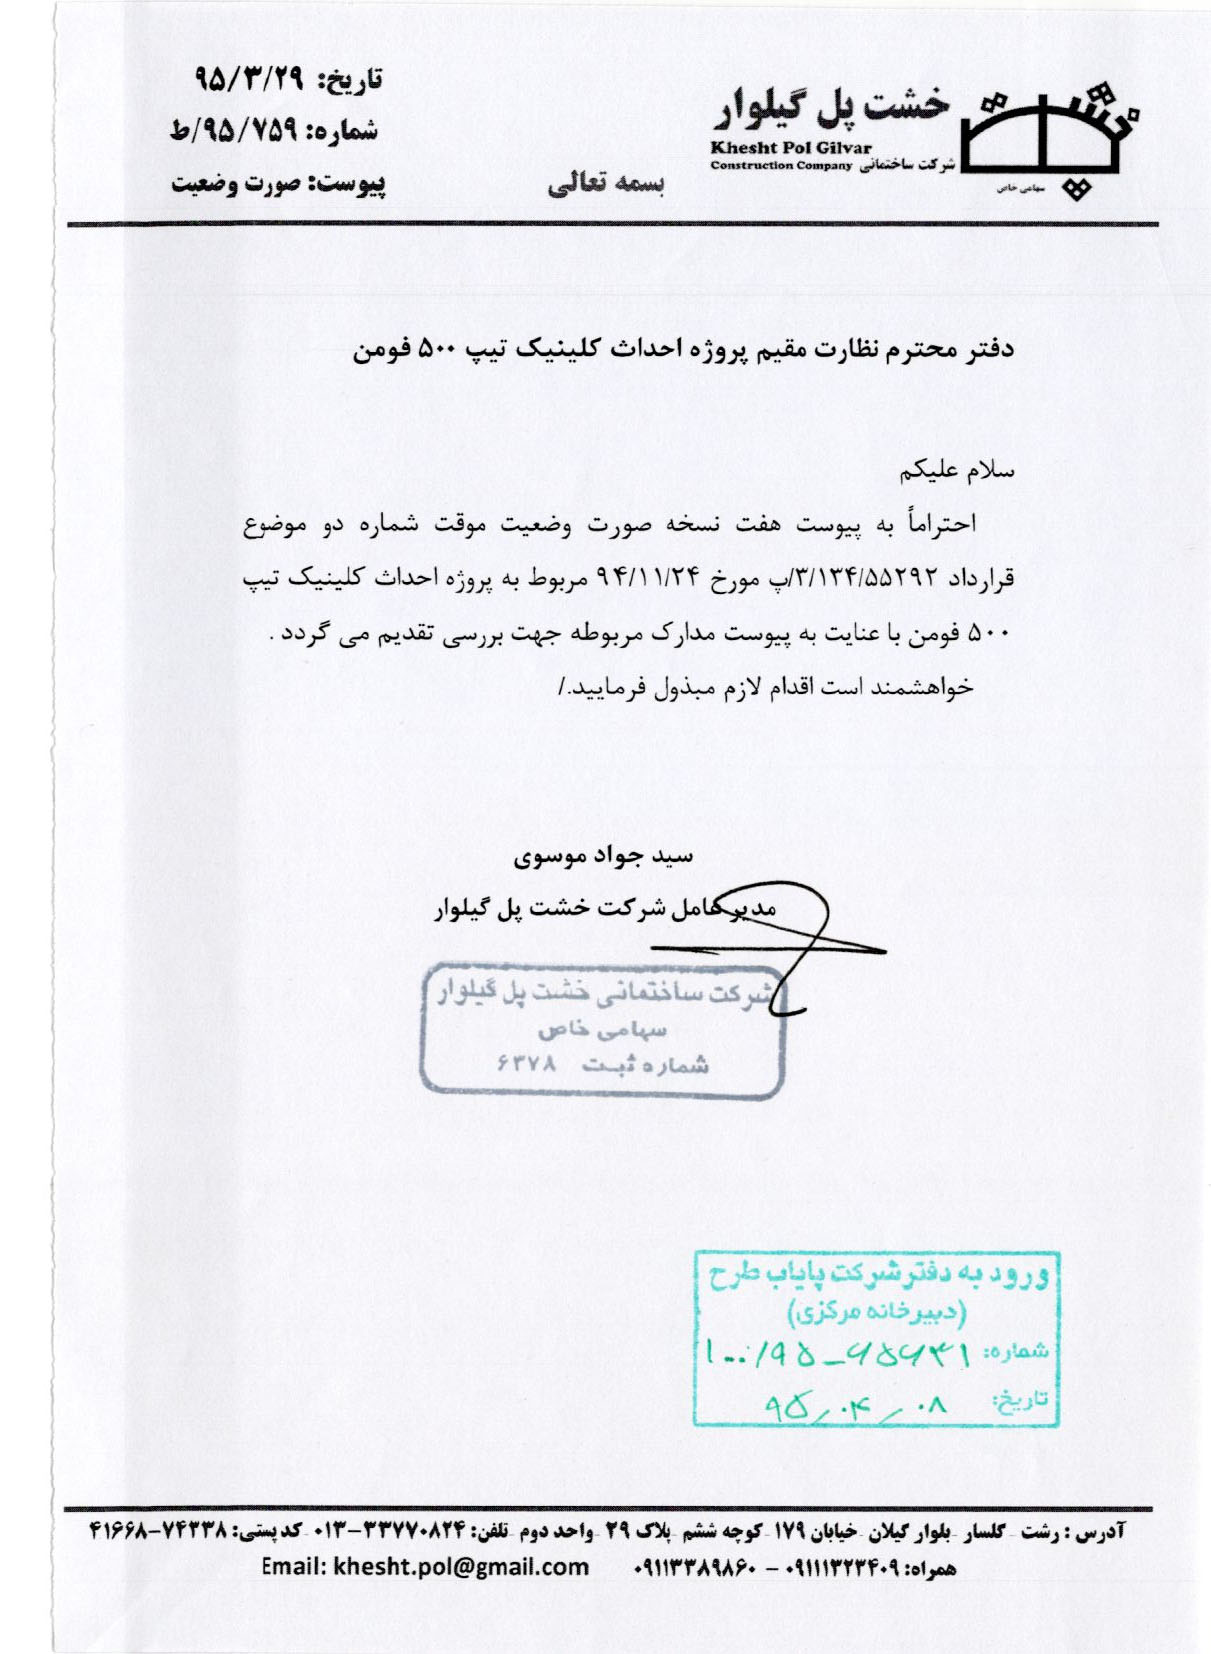 تاریخ: ۹۵/۳/۲۹
شماره: ۹۵/۷۵۹/ط
پیوست: صورت وضعیت
بسمه تعالی
خشت پل گیلوار
Khesht Pol Gilvar
شرکت ساختمانی Construction Company
سهامی خاص
دفتر محترم نظارت مقیم پروژه احداث کلینیک تیپ ۵۰۰ فومن
سلام علیکم
احتراماً به پیوست هفت نسخه صورت وضعیت موقت شماره دو موضوع
قرارداد ۳/۱۳۴/۵۵۲۹۲/پ مورخ ۹۴/۱۱/۲۴ مربوط به پروژه احداث کلینیک تیپ
۵۰۰ فومن با عنایت به پیوست مدارک مربوطه جهت بررسی تقدیم می گردد .
خواهشمند است اقدام لازم مبذول فرمایید./
سید جواد موسوی
مدیر عامل شرکت خشت پل گیلوار
شرکت ساختمانی خشت پل گیلوار
سهامی خاص
شماره ثبت ۶۳۷۸
ورود به دفتر شرکت پایاب طرح
(دبیرخانه مرکزی)
شماره:
تاریخ: ۹۵/۰۴/۰۸
آدرس : رشت - گلسار - بلوار گیلان - خیابان ۱۷۹ - کوچه ششم - پلاک ۲۹ - واحد دوم - تلفن: ۳۳۷۷۰۸۲۴-۰۱۳ - کد پستی: ۷۴۳۳۸-۴۱۶۶۸
همراه: ۰۹۱۱۱۳۲۳۴۰۹ - ۰۹۱۱۳۳۸۹۸۶۰ Email: khesht.pol@gmail.com